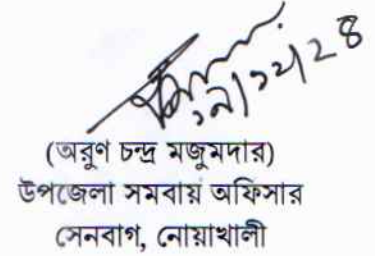 (অরুণ চন্দ্র মজুমদার)
উপজেলা সমবায় অফিসার
সেনবাগ, নোয়াখালী